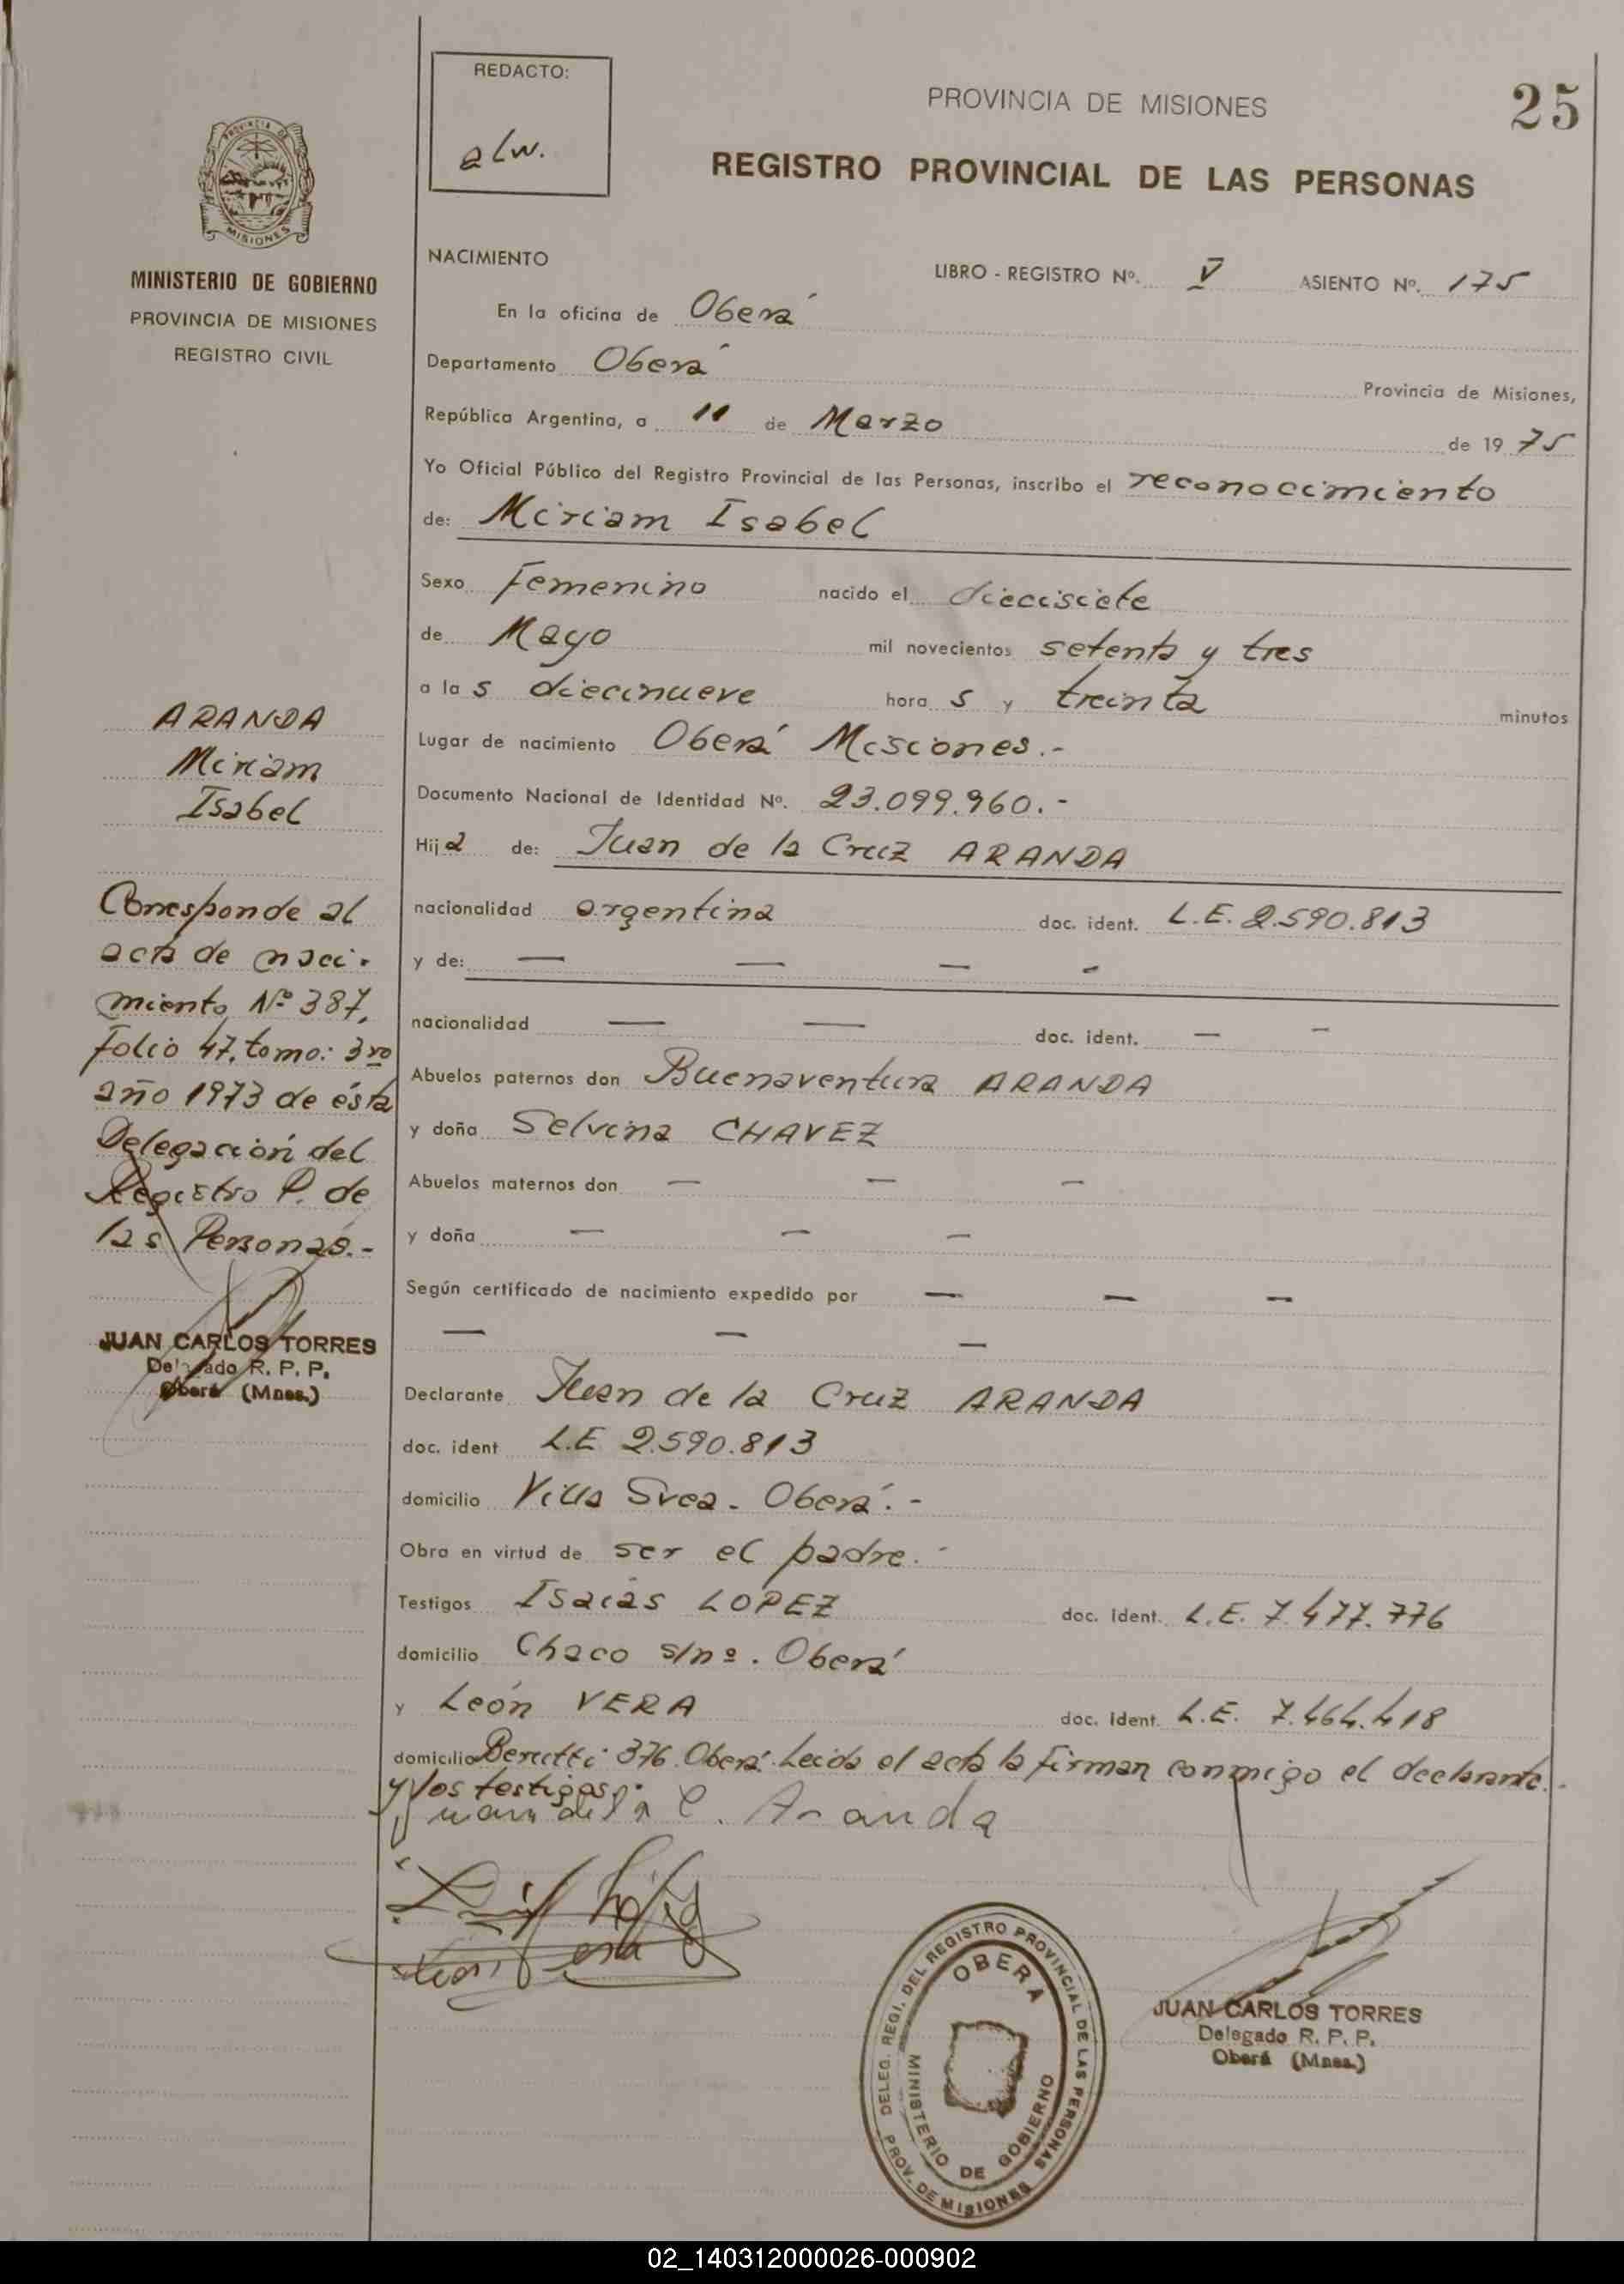 REDACTO:
alw.
PROVINCIA DE MISIONES
25
REGISTRO PROVINCIAL DE LAS PERSONAS
PROVINCIA DE
MISIONES
MINISTERIO DE GOBIERNO
PROVINCIA DE MISIONES
REGISTRO CIVIL
NACIMIENTO
LIBRO - REGISTRO Nº. V ASIENTO Nº. 175
En la oficina de Oberá
Departamento Oberá Provincia de Misiones,
República Argentina, a 11 de Marzo de 1975
Yo Oficial Público del Registro Provincial de las Personas, inscribo el reconocimiento
de: Miriam Isabel
Sexo Femenino nacido el diecisiete
de Mayo mil novecientos setenta y tres
a las diecinueve horas y treinta minutos
Lugar de nacimiento Oberá Misiones.-
Documento Nacional de Identidad Nº. 23.099.960.-
Hija de: Juan de la Cruz ARANDA
nacionalidad argentina doc. ident. L.E. 2.590.813
y de: — — — -
nacionalidad — — doc. ident. — -
Abuelos paternos don Buenaventura ARANDA
y doña Selvina CHAVEZ
Abuelos maternos don — — —
y doña — — —
Según certificado de nacimiento expedido por — — —
— — —
Declarante Juan de la Cruz ARANDA
doc. ident L.E. 2.590.813
domicilio Villa Svea - Oberá.-
Obra en virtud de ser el padre.-
Testigos Isaías LOPEZ doc. Ident. L.E. 7.477.776
domicilio Chaco s/nº. Oberá
y León VERA doc. Ident. L.E. 7.464.418
domicilio Berutti 376 Oberá. Leída el acta la firman conmigo el declarante.
y los testigos.
Juan de la C. Aranda
ARANDA
Miriam
Isabel
Corresponde al
acta de naci-
miento Nº 387,
Folio 47, tomo: 3ro
año 1973 de ésta
Delegación del
Registro P. de
las Personas.-
JUAN CARLOS TORRES
Delegado R. P. P.
Oberá (Mnes.)
DELEG. REGI. DEL REGISTRO PROVINCIAL DE LAS PERSONAS
PROV. DE MISIONES
OBERA
MINISTERIO DE GOBIERNO
JUAN CARLOS TORRES
Delegado R. P. P.
Oberá (Mnes.)
02_140312000026-000902